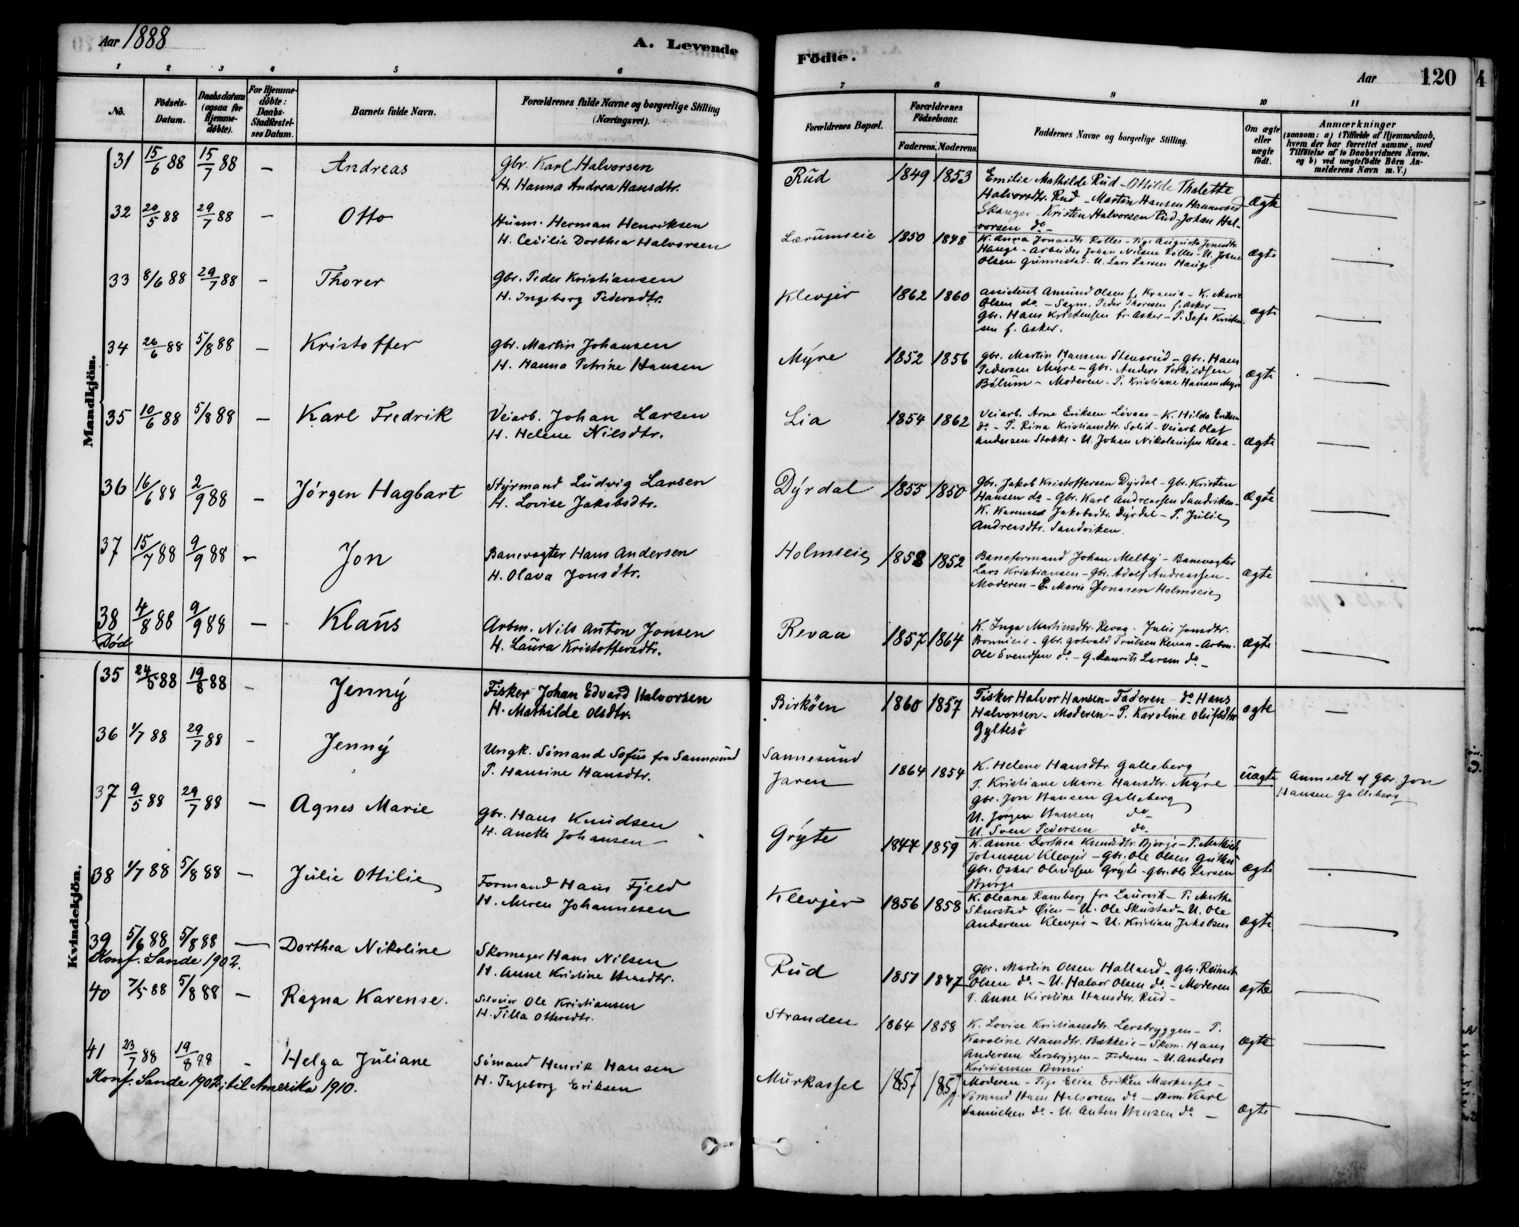 Aar 1888
A. Levende
Födte.
Aar
120
1 2 3 4 5 6
7 8 9 10 11
No.
Födsels-Datum.
Daabsdatum (ogsaa for Hjemme-döbte).
For Hjemme-döbte: Daabs-Stadfæstel-ses Datum.
Barnets fulde Navn.
Forældrenes fulde Navne og borgerlige Stilling (Næringsvei).
Forældrenes Bopæl.
Forældrenes Födselsaar.
Faderens. Moderens.
Faddernes Navne og borgerlige Stilling.
Om ægte eller uægte födt.
Anmærkninger
(saasom: a) i Tilfælde af Hjemmedaab,
hvem der har forrettet samme, med
Tilföielse af to Daabsvidners Navne,
og b) ved uægtefödte Börn An-
melderens Navn m. V.)
Mandkjön.
31 15/6 88 15/7 88 — Andreas
Gbr. Karl Halvorsen
H. Hanna Andrea Hansdtr.
Rud 1849 1853
Emilie Mathilde Rud - Othilde Thalette
Halvorsdtr. Rud - Martin Hansen
Skanger - Kristen Halvorsen Rud - Johan Hal-
vorsen do -
Ægte
32 20/5 88 29/7 88 — Otto
Husm. Herman Henriksen
H. Cecilie Dorthea Halvorsen
Lærumseie 1850 1848
K. Anna
Hauge - Arbeider Johan Nilsen
Olsen Gunnestad - U. Lars Larsen Hauge
ægte
33 8/6 88 29/7 88 — Thorer
Gbr. Peder Kristiansen
H. Ingeborg Pedersdtr.
Klevjer 1862 1860
Assistent Amund Olsen f. Krania - K. Marie
Olsen do - Sagm. Peder Thoresen f. Asker -
Gbr. Hans Kristensen fr. Asker - P. Sofie Kristen-
sen f. Asker.
ægte
34 26/6 88 5/8 88 — Kristoffer
Gbr. Martin Johansen
H. Hanna Petrine Hansen
Myre 1852 1856
Gbr. Martin Hansen Stensrud - Gbr. Hans
Pedersen Myre - Gbr. Anders
Bölum - Moderen - P. Kristiane Hansen Myre
ægte
35 10/6 88 5/8 88 — Karl Fredrik
Veiarb. Johan Larsen
H. Helene Nilsdtr.
Lia 1854 1862
Veiarb. Arne Eriksen Lövaas - K. Hilda Eriksen
do - P. Rina Kristiansdtr. Solid - Veiarb. Olaf
Andersen Stokke - U. Johan Nikolaisen
ægte
36 16/6 88 2/9 88 — Jörgen Hagbart
Styrmand Ludvig Larsen
H. Lovise Jakobsdtr.
Dyrdal 1855 1850
Gbr. Jakob Kristoffersen Dyrdal - Gbr. Kristen
Hansen do - Gbr. Karl Andreassen Sandviken -
K. Karense Jakobsdtr. Dyrdal - P. Julie
Andreasdtr. Sandviken.
ægte
37 15/7 88 9/9 88 — Jon
Banevogter Hans Andersen
H. Olava Jonsdtr.
Holmseie 1858 1852
Baneformand Johan Melby - Banevogter
Lars Kristiansen - Gbr. Adolf Andreassen -
Moderen - E. Marie Jonassen Holmseie
ægte
38 4/8 88 9/9 88 — Klaus
Död
Arbm. Nils Anton Jonsen
H. Laura Kristoffersdtr.
Revaa 1857 1864
K. Inga Martinsdtr. Revaa - Julie Jonsdtr.
Gbr. Gotvald Truelsen Revaa - Arbm.
Ole Svendsen do - G. Laurits Larsen do -
ægte
Kvindekjön.
35 24/5 88 19/8 88 — Jenny
Fisker Johan Edvard Halvorsen
H. Mathilde Olsdtr.
Birköen 1860 1857
Fisker Halvor Hansen - Faderen - do Hans
Halvorsen - Moderen - P. Karoline Olufsdtr
Gyltesö
ægte
36 1/7 88 29/7 88 - Jenny
Ungk. Sömand Sofus fra Sannesund
P. Hansine Hansdtr.
Sannesund
Jaren 1864 1854
K. Helene Hansdtr. Galleberg
P. Kristiane Marie Hansdtr. Myre
Gbr. Jon Hansen Galleberg
U. Jörgen Hansen do -
U. Sven Pedersen do -
uægte
Anmeldt af Gbr. Jon
Hansen Galleberg
37 9/5 88 29/7 88 — Agnes Marie
Gbr. Hans Knudsen
H. Anette Johansen
Gryte 1844 1859
K. Anne Dorthea Knudsdtr. Bjerge - P. Mathilde
Johansen Klevjer - Gbr. Ole Olsen
Gbr. Oskar Olaussen Gryte - Gbr. Ole Larsen
ægte
38 1/7 88 5/8 88 — Julie Ottilie
Formand Hans Fjeld
H. Maren Johannesen
Klevjer 1856 1858
K. Oleane Ramberg fra Laurvik - P. Marthe
Skustad Öien - U. Ole Skustad - U. Ole
Andersen Klevjer - U. Kristian Jakobsen
ægte
39 5/6 88 5/8 88 — Dorthea Nikoline
Konf. Sande 1902.
Skomager Hans Nilsen
H. Anne Kristine Hansdtr.
Rud 1851 1847
Gbr. Martin Olsen Holland - Gbr. Reinert
Olsen do - U. Halvor Olsen do - Moderen
P. Anne Kirstine Hansdtr. Rud -
ægte
40 7/5 88 5/8 88 — Ragna Karense.
Ole Kristiansen
H. Tilla Ottersdtr.
Stranden 1864 1858
K. Lovise Kristiansdtr. Lersbryggen - P.
Karoline Hansdtr. Bakkeie - Skom. Hans
Andersen Lersbryggen - Faderen - U. Anders
Kristiansen
ægte
41 23/7 88 19/8 88 - Helga Juliane
Konf. Sande 1902; til Amerika 1910.
Sömand Henrik Hansen
H. Ingeborg Eriksen
Murkassel 1857 1857
Moderen - Pige Elise Eriksen Murkassel -
Sömand Hans Halvorsen do - Skom. Karl
Samuelsen do - U. Anton Hansen do -
ægte